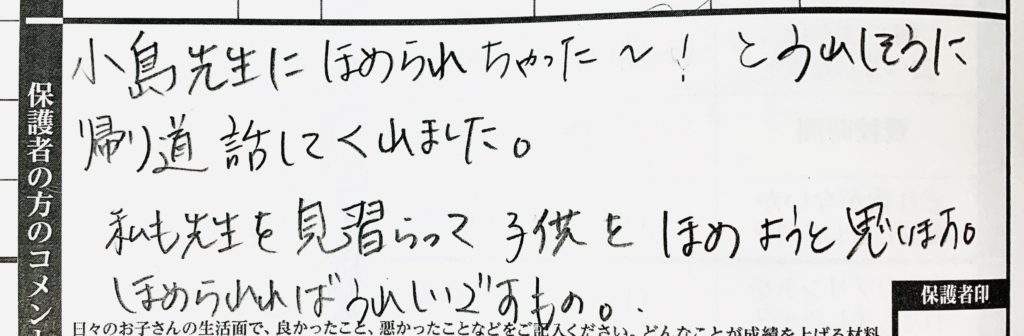 保護者の方のコメント
小島先生にほめられちゃった～! とうれしそうに
帰り道 話してくれました。
私も先生を見習らって子供をほめようと思います。
ほめられればうれしいですもの。
保護者印
日々のお子さんの生活面で、良かったこと、悪かったことなどをご記入ください。どんなことが成績を上げる材料